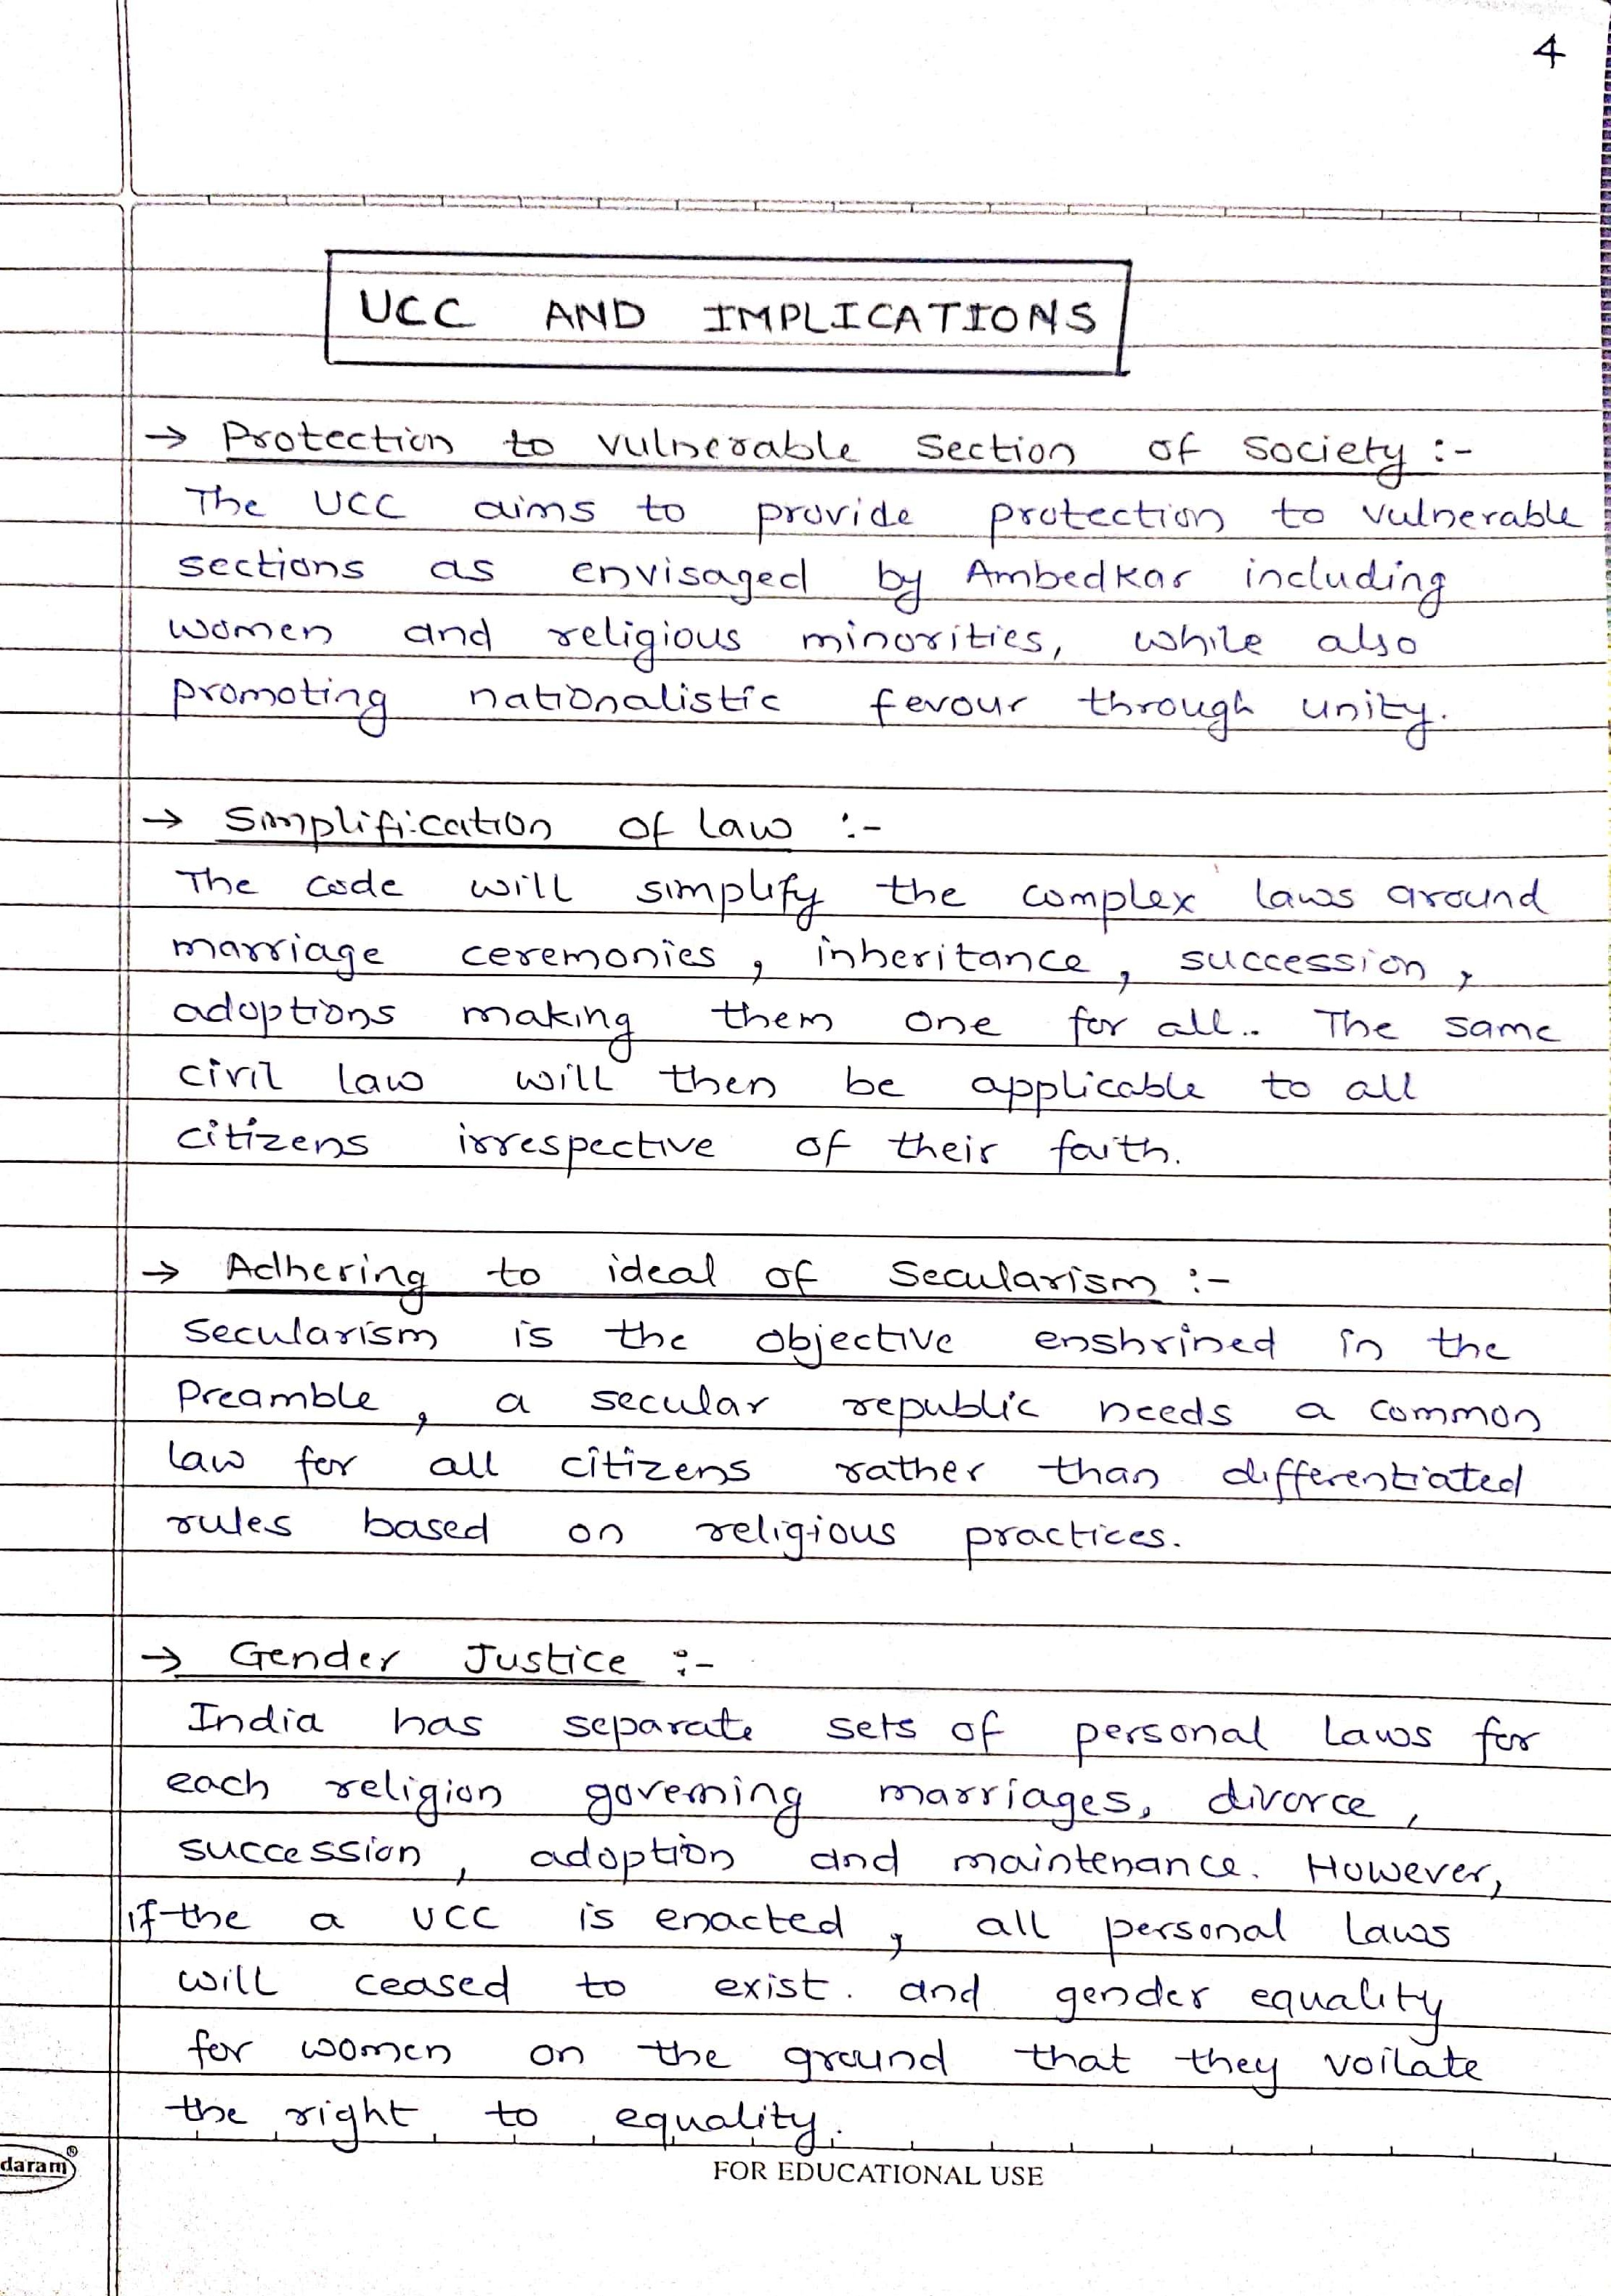 4
UCC AND IMPLICATIONS
→ Protection to vulnerable section of society :-
The UCC aims to provide protection to vulnerable
sections as envisaged by Ambedkar including
women and religious minorities, while also
promoting nationalistic fevour through unity.
→ Simplification of law :-
The code will simplify the complex laws around
marriage ceremonies, inheritance, succession,
adoptions making them one for all.. The same
civil law will then be applicable to all
citizens irrespective of their faith.
→ Adhering to ideal of Secularism :-
Secularism is the objective enshrined in the
Preamble, a secular republic needs a common
law for all citizens rather than differentiated
rules based on religious practices.
→ Gender Justice :-
India has separate sets of personal laws for
each religion governing marriages, divorce,
succession, adoption and maintenance. However,
if the a UCC is enacted, all personal laws
will ceased to exist. and gender equality
for women on the ground that they voilate
the right to equality.
daram®
FOR EDUCATIONAL USE